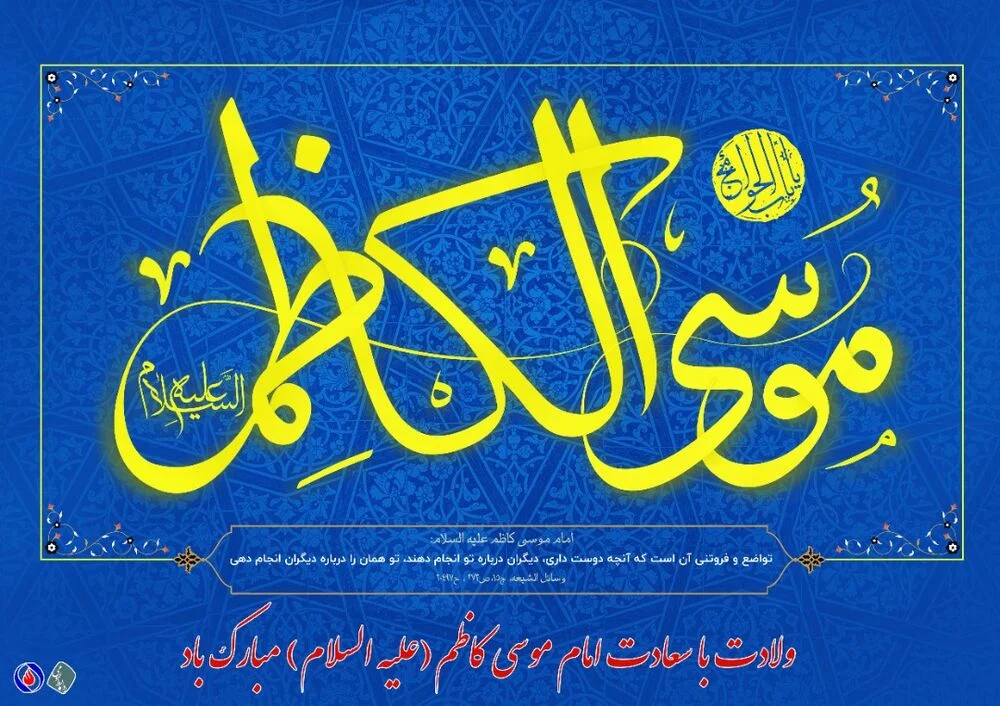 موسی الکاظم
علیه السلام
یا باب الحوائج
امام موسی کاظم علیه السلام:
تواضع و فروتنی آن است که آنچه دوست داری، دیگران درباره تو انجام دهند، تو همان را درباره دیگران انجام دهی
وسائل الشیعه، ج۱۵، ص۲۷۳، ح۲۰۴۹۷
ولادت با سعادت امام موسی کاظم (علیه السلام) مبارک باد